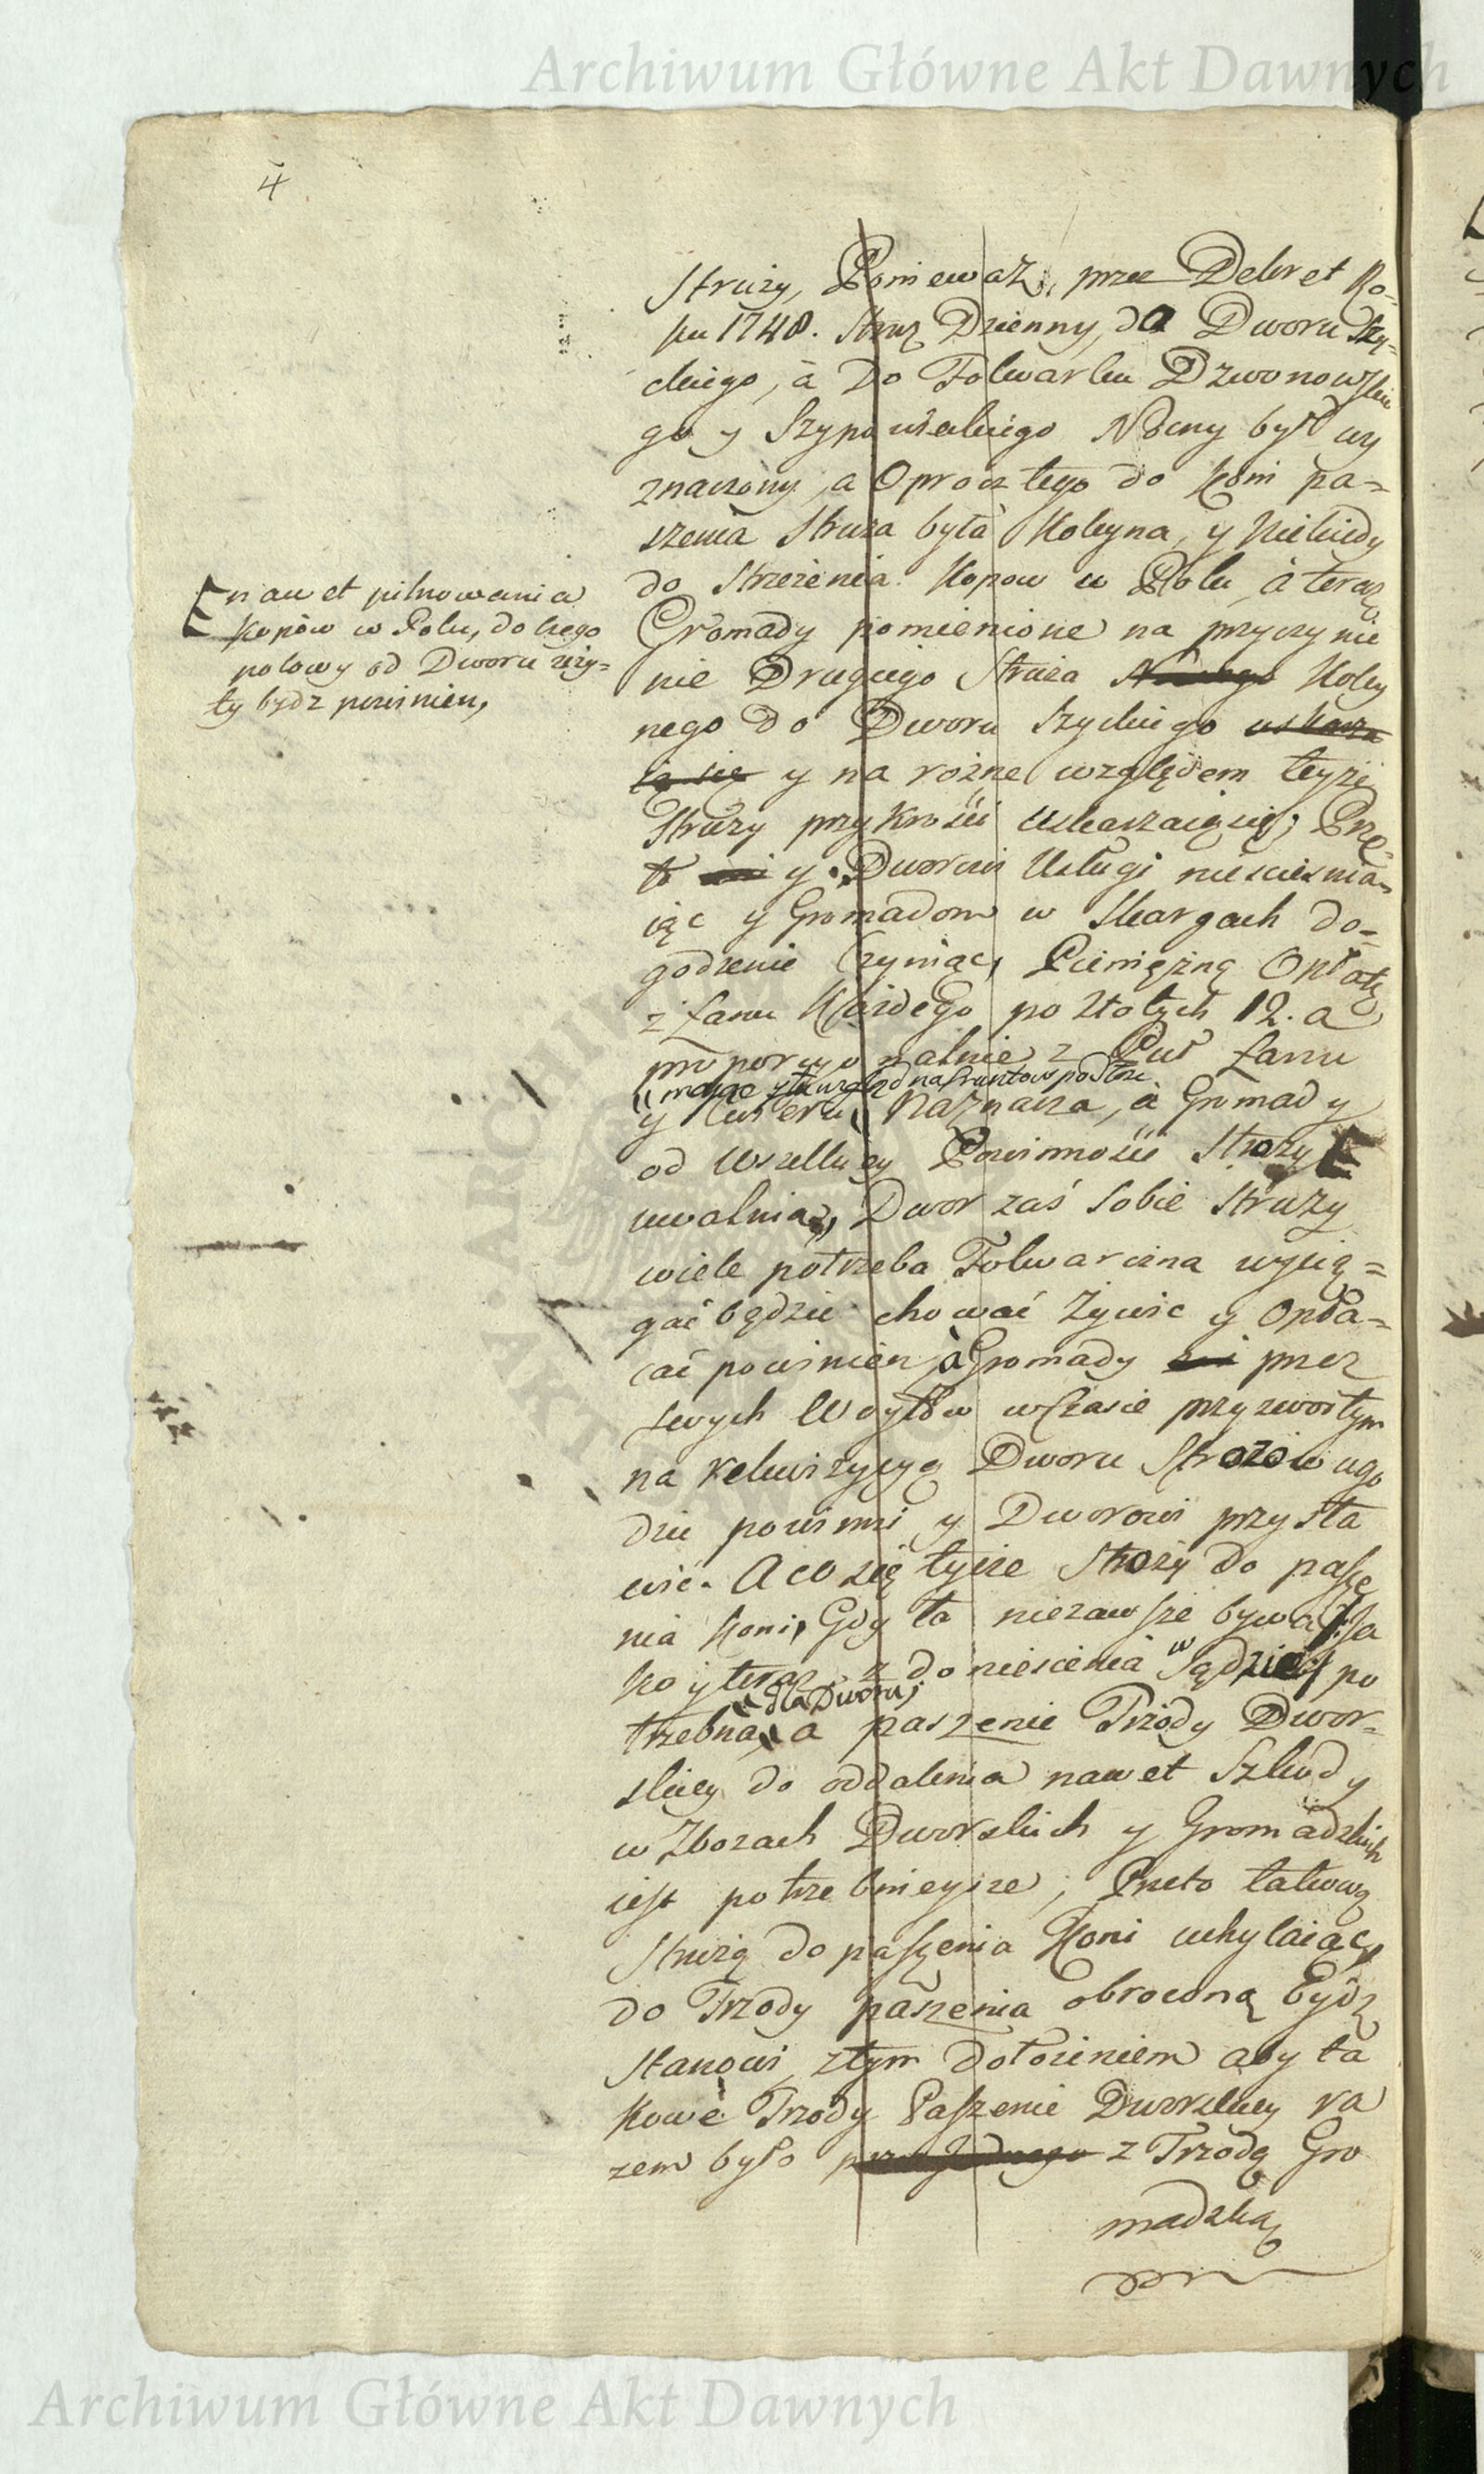 Archiwum Główne Akt Dawnych
4
Struży, Ponieważ, przez Dekret Ro-
ku 1748. Struż Dzienny, do Dworu Szy-
ckiego, à do Folwarku Dzwonowskie
go y Szypowskiego Nocny był wy
znaczony, a Oprocz tego do Koni pa-
szenia Struża była Koleyna, y Niekiedy
do Strzeżenia Kopow w Polu, à teraz
Gromady pomienione na przyczynie
nie Drugiego Struża Koley
nego do Dworu Szyckiego uskarza
ią się y na rożne względem teyże
Struży przykrości Uskarzaią się; Prze
to y Dworowi Usługi nieścieśnia-
iąc y Gromadom w Skargach do-
godzenie Czyniąc, Pieniężną Opłatę
z Łanu Każdego po Złotych 12. a
proporcyonalnie z Puł Łanu
maiąc y tu wzgląd na Gruntow podłosc
y Cwierci Naznacza, à Gromady
od Wszelkiey Powinności Stroży
uwalnia, Dwor zaś sobie Struży
wiele potrzeba Folwarczna wycią-
gać będzie chować żywic y Opła-
cać powinien, à Gromady przez
swych Woytow w Czasie przyzwoitym
na rekwizycyą Dworu Strożow ugo
dzic powinni y Dworowi przysta
wić. A co się tycze Stroży do pasze
nia Koni, Gdy ta niezawsze bywa, Ja
ko y teraz z doniesienia w Sądzie po
dla Dworu
trzebna, a paszenie Trzody Dwor-
skiey do oddalenia nawet Szkody
w Zbożach Dworskich y Gromadzkich
iest potrzebnieysze; Przeto takową
Strużą do paszenia Koni uchylaiąc
do Trzody paszenia obroconą bydz
Stanowi, z tym dołożeniem aby ta
kowe Trzody Paszenie Dworskiey ra
zem było z Trzodą Gro
madzką
nawet pilnowania
Kopów w Polu, do czego
polowy od Dworu zży-
ty bydz powinien,
Archiwum Główne Akt Dawnych